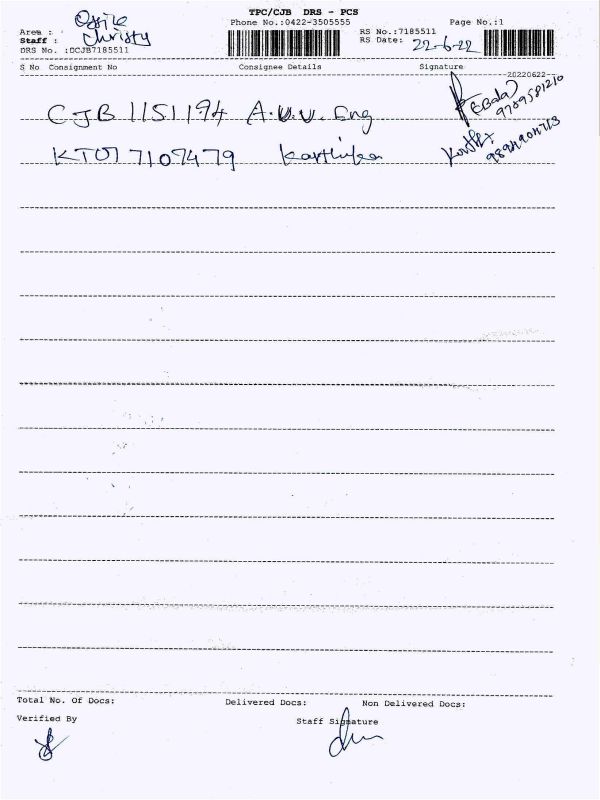 TPC/CJB DRS - PCS
Phone No.:0422-3505555
Page No.:1
Area : Office
Staff : Christy
DRS No. :DCJB7185511
RS No.:7185511
RS Date: 22-6-22
S No Consignment No Consignee Details Signature
20220622
CJB 1151194 A.V.V. Eng
9789581210
KTO 7107479 Karthika
Total No. Of Docs: Delivered Docs: Non Delivered Docs:
Verified By Staff Signature